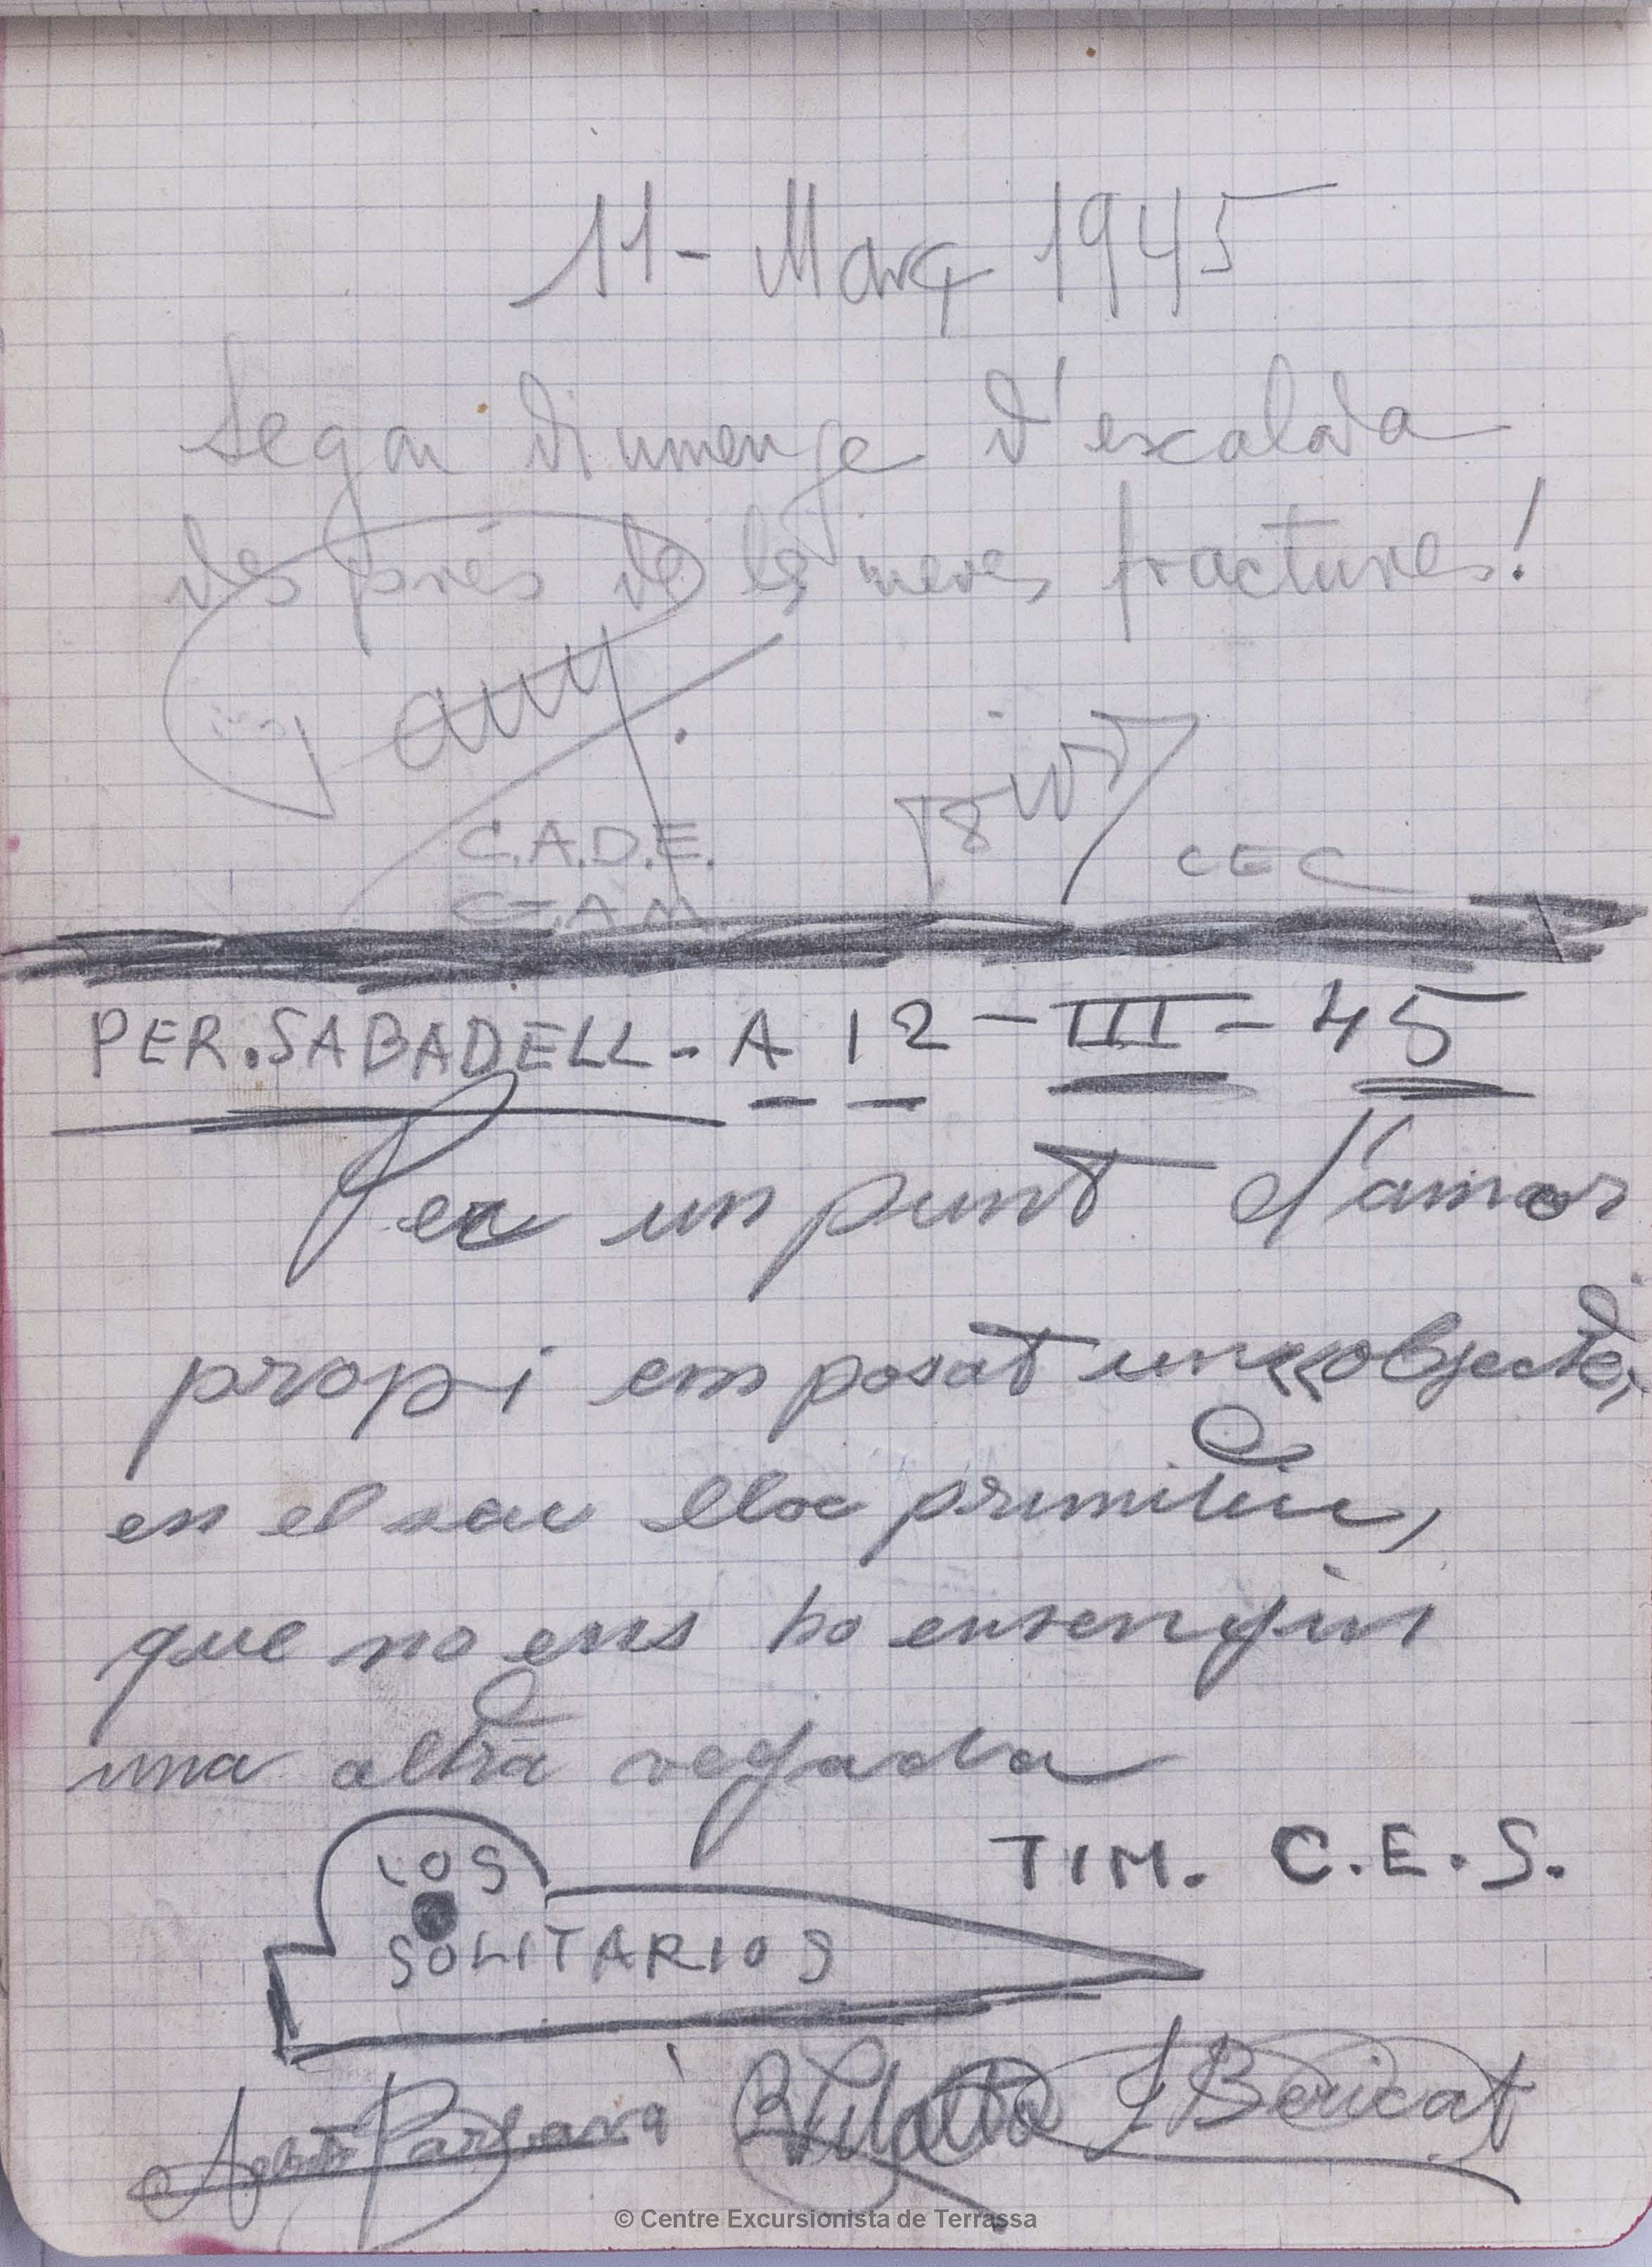 11 - Març 1945
Segon diumenge d'escalada
després de les meves fractures!
C.A.D.E. CEC
G.A.M.
PER. SABADELL - A 12 - III - 45
Per un punt d'amor
propi em posat un «objecte»
en el sau lloc primitiu,
que no ens ho ensenyin
una altra vegada
TIM. C.E.S.
LOS
SOLITARIOS
J Bericat
© Centre Excursionista de Terrassa